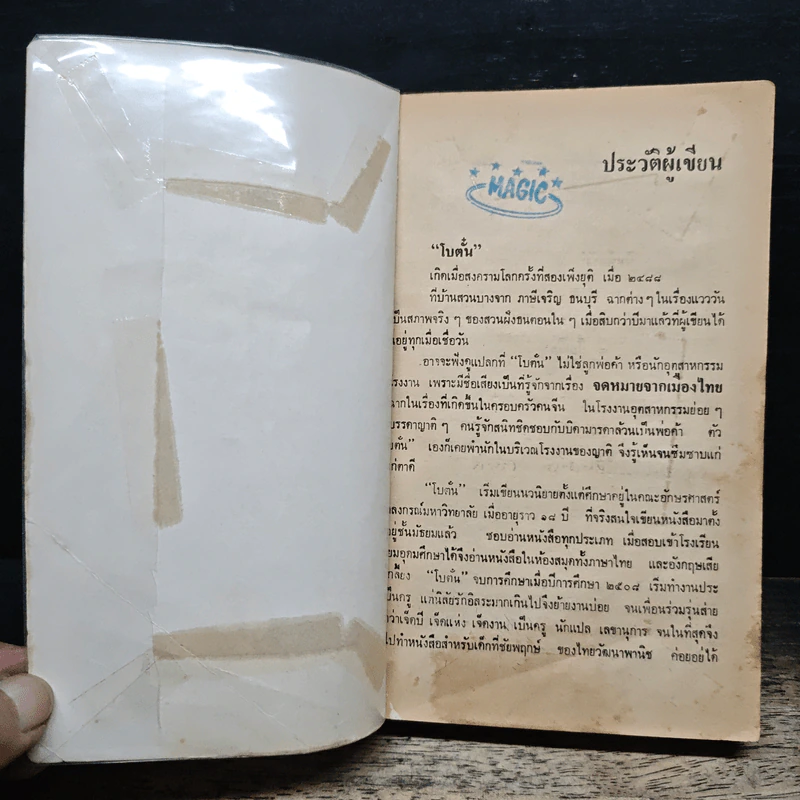 ประวัติผู้เขียน
MAGIC
“โบตั๋น”
เกิดเมื่อสงครามโลกครั้งที่สองเพิ่งยุติ เมื่อ ๒๔๘๘
ที่บ้านสวนบางจาก ภาษีเจริญ ธนบุรี ฉากต่างๆ ในเรื่องแวววัน
เป็นสภาพจริง ๆ ของสวนฝั่งธนตอนใน ๆ เมื่อสิบกว่าปีมาแล้วที่ผู้เขียนได้
อยู่ทุกเมื่อเชื่อวัน
อาจจะฟังดูแปลกที่ “โบตั๋น” ไม่ใช่ลูกพ่อค้า หรือนักอุตสาหกรรม
โรงงาน เพราะมีชื่อเสียงเป็นที่รู้จักจากเรื่อง จดหมายจากเมืองไทย
ฉากในเรื่องที่เกิดขึ้นในครอบครัวคนจีน ในโรงงานอุตสาหกรรมย่อย ๆ
บรรดาญาติ ๆ คนรู้จักสนิทชิดชอบกับบิดามารดาล้วนเป็นพ่อค้า ตัว
ตั๋น” เองก็เคยพำนักในบริเวณโรงงานของญาติ จึงรู้เห็นจนซึมซาบแก่
ตาดี
“โบตั๋น” เริ่มเขียนนวนิยายตั้งแต่ศึกษาอยู่ในคณะอักษรศาสตร์
ลงกรณ์มหาวิทยาลัย เมื่ออายุราว ๑๘ ปี ที่จริงสนใจเขียนหนังสือมาตั้ง
อยู่ชั้นมัธยมแล้ว ชอบอ่านหนังสือทุกประเภท เมื่อสอบเข้าโรงเรียน
มอุดมศึกษาได้จึงอ่านหนังสือในห้องสมุดทั้งภาษาไทย และอังกฤษเสีย
เกลี้ยง “โบตั๋น” จบการศึกษาเมื่อปีการศึกษา ๒๕๐๘ เริ่มทำงานประ
เป็นครู แต่นิสัยรักอิสระมากเกินไปจึงย้ายงานบ่อย จนเพื่อนร่วมรุ่นล่าย
ว่าเจ็ดปี เจ็ดแห่ง เจ็ดงาน เป็นครู นักแปล เลขานุการ จนในที่สุดจึง
ไปทำหนังสือสำหรับเด็กที่ชัยพฤกษ์ ของไทยวัฒนาพานิช ค่อยอยู่ได้